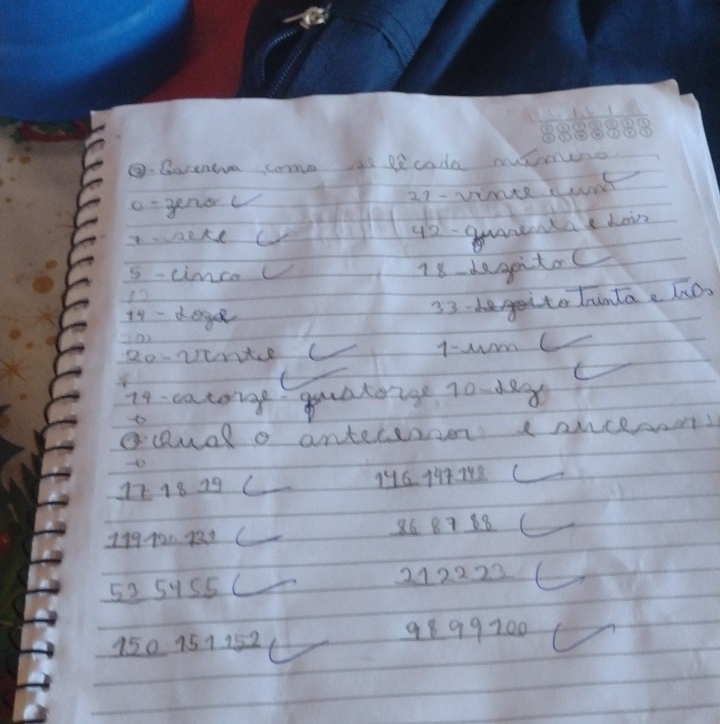 como se lê cada número
0-zero 21-vinte e um
7-sete 42-quarenta e dois
5-cinco 18-dezoito
33-dezoito Trinta e três
20-vinte 1-um
14-catorze-quatorze 10-dez
Qual o antecessor e sucessor
17 18 19 146 147 148
119 120 121 86 87 88
53 54 55 21 22 23
150 151 152 98 99 100